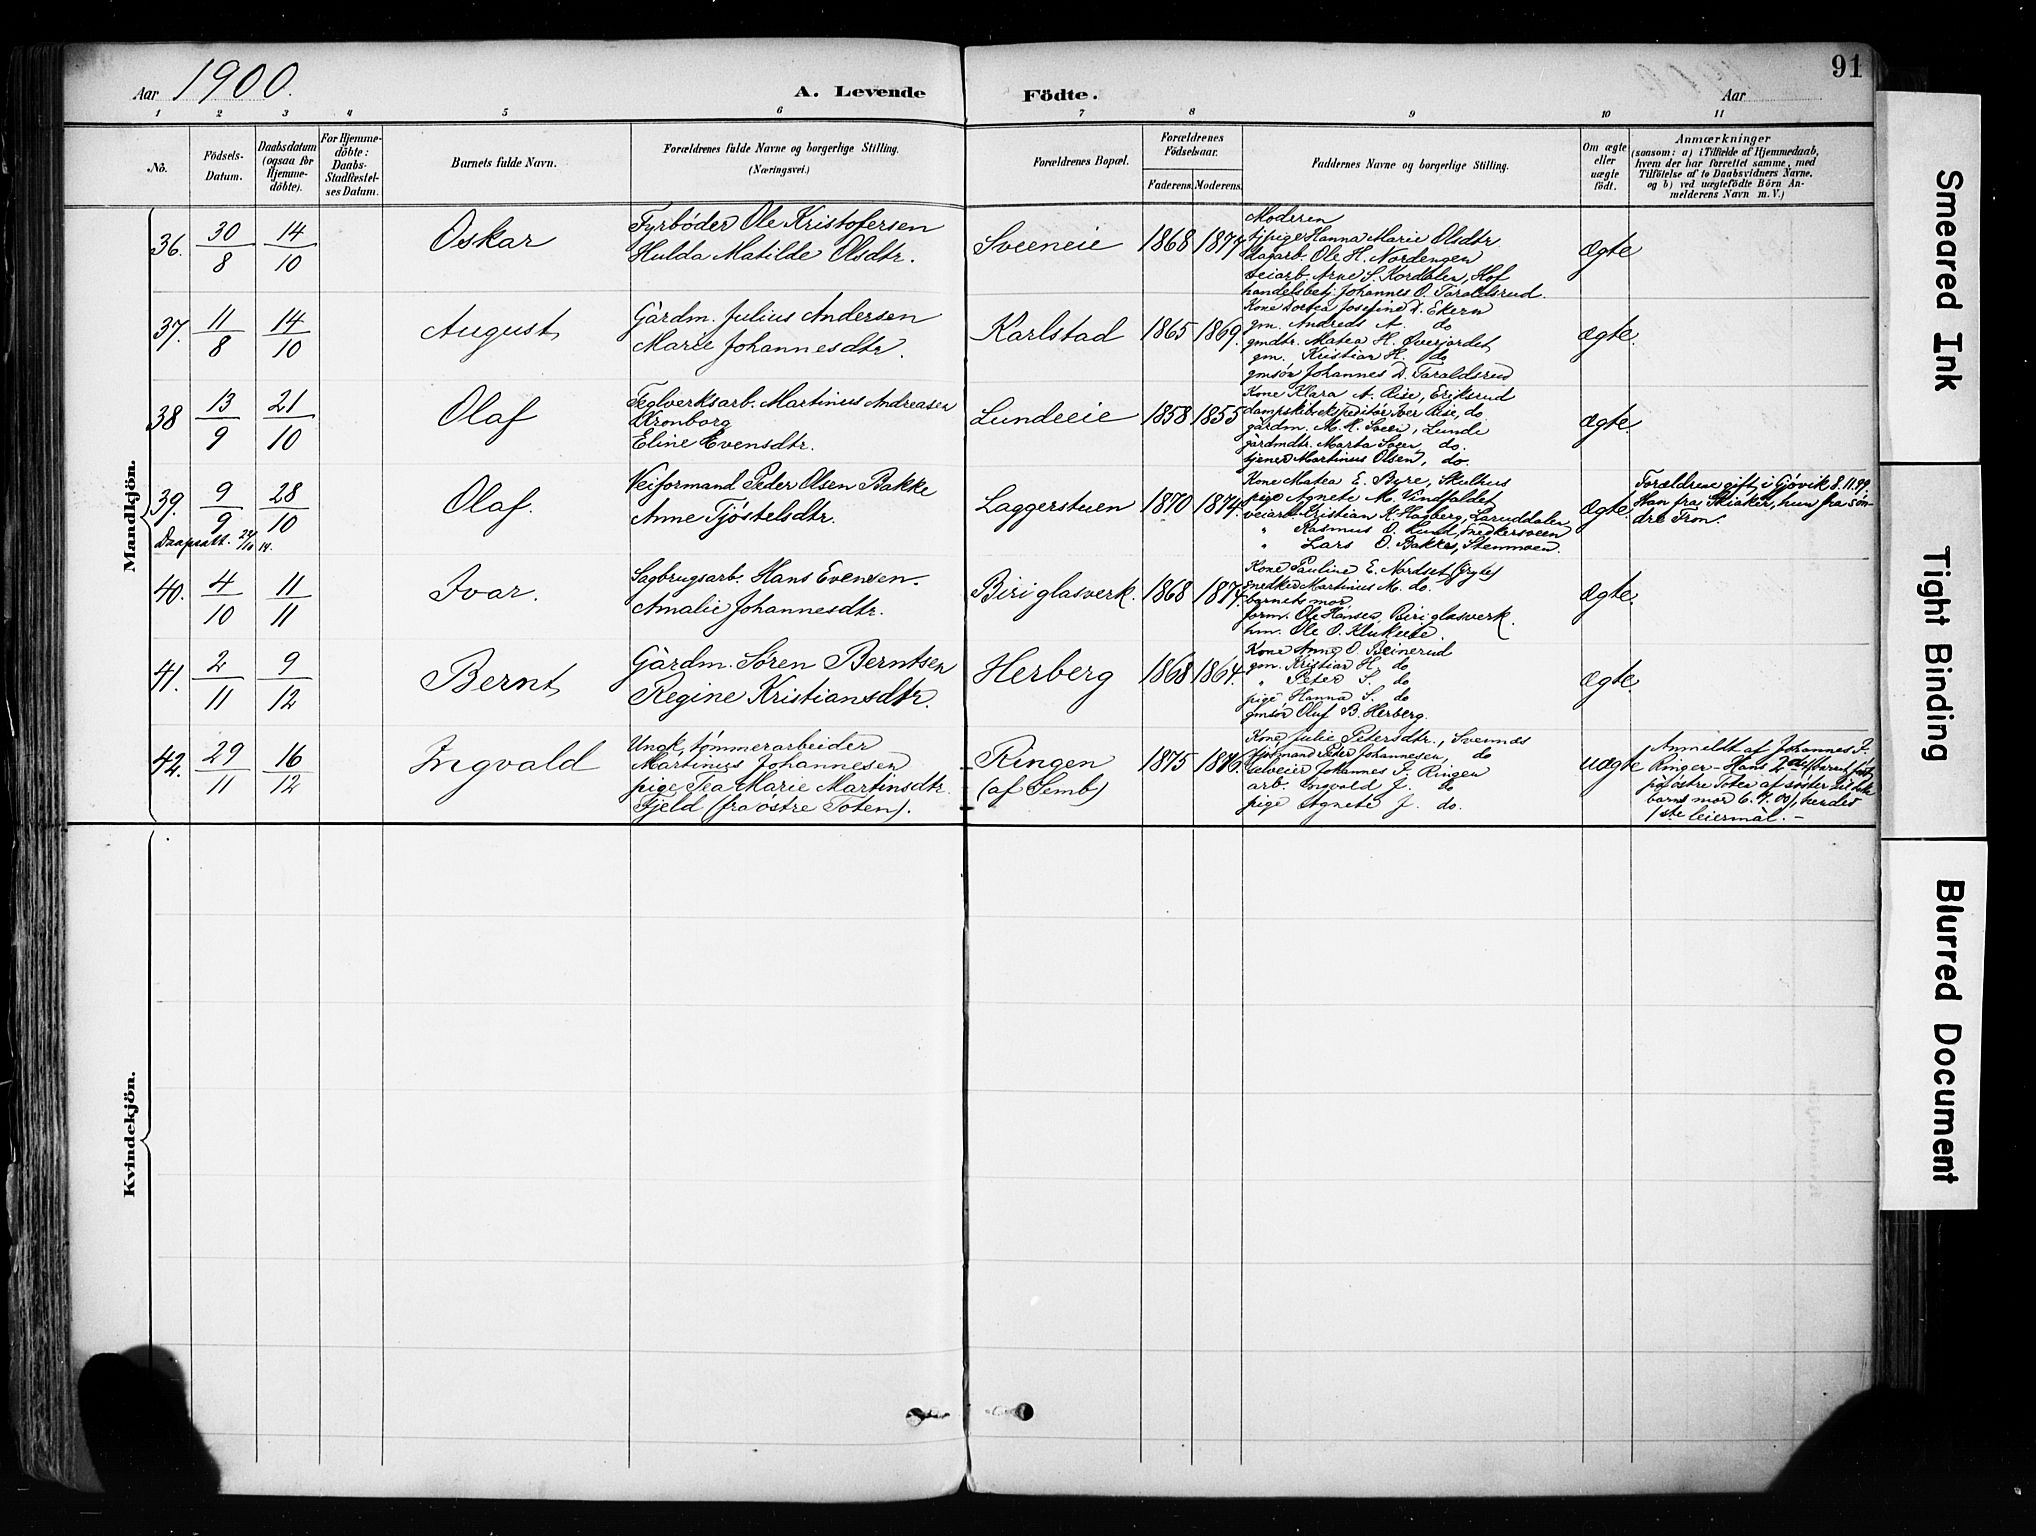 91
Aar 1900. A. Levende Födte. Aar
1 2 3 4 5 6 7 8 9 10 11
No.
Födsels-Datum.
Daabsdatum (ogsaa for Hjemmedöbte).
For Hjemmedöbte: Daabs-Stadfæstelses Datum.
Barnets fulde Navn.
Forældrenes fulde Navne og borgerlige Stilling.
(Næringsvei.)
Forældrenes Bopæl.
Forældrenes Födselsaar.
Faderens. Moderens.
Faddernes Navne og borgerlige Stilling.
Om ægte eller uægte födt.
Anmærkninger
(saasom: a) i Tilfælde af Hjemmedaab,
hvem der har forrettet samme, med
Tilföielse af to Daabsvidners Navne,
og b) ved uægtefödte Börn Anmelderens Navn m. V.)
Mandkjön.
36. 30/8 14/10 Oskar
Fyrbøder Ole Kristofersen
Hulda Matilde Olsdtr.
Sveeneie 1868 1874
Moderen
tjpige Hanna Marie Olsdtr.
dagarb. Ole H. Nordengen
veiarb. Arne S. Kordalen, Hof
handelsbetj. Johannes O. Taraldsrud.
ægte
37. 11/8 14/10 August
Gårdm. Julius Andersen
Marie Johannesdtr.
Karlstad 1865 1869.
Kone Dortea Josefine D. Ekern
gm. Andreas A. do
gmdtr. Matea H. Øverjordet
gm. Kristian H. do
gmsøn Johannes D. Taraldsrud
ægte.
38 13/9 21/10 Olaf
Teglverksarb. Martinus Andreasen
Kronborg
Eline Evensdtr.
Lundeeie 1858 1855
Kone Klara A. Rise, Eriksrud
dampskibsekspeditør Iver Rise, do
gårdm. M. K. Sveen, Lunde
gårdmdtr. Marta Sveen, do.
tjener Martinus Olsen, do.
ægte.
39. 9/9 28/10 Olaf.
Veiformand Peder Olsen Bakke
Anne Tjøstelsdtr.
Laggerstuen 1870 1874.
Kone Matea E. Byre, Skulhus
pige Agnete M. Vindfaldet
veiarb. Kristian K. Hagberg, Laruddalen
" Rasmus O. Lund, Snedkersveen
" Lars O. Bakke, Stenmoen.
ægte.
Forældrene gift i Gjøvik 8.11.99.
Han fra Skiaker, hun fra søndre Fron.
40. 4/10 11/11 Ivar.
Sagbrugsarb. Hans Evensen.
Amalie Johannesdtr.
Biri glasverk. 1868 1874.
Kone Pauline E. Nordset
snedker Martinus M. do.
barnets mor
form. Ole Hansen, Biri glasverk.
hm. Ole O. Klukeeie.
ægte.
41. 2/11 9/12 Bernt
Gårdm. Søren Berntsen
Regine Kristiansdtr.
Herberg 1868 1864.
Kone Anne O. Beinerud
gm. Kristian H. do
" Peter S. do
pige Hanna S. do
gmsøn Oluf B. Herberg.
ægte.
42. 29/11 16/12 Ingvald
Ungk. tømmerarbeider
Martinus Johannesen
pige Tea Marie Martinsdtr.
Fjeld (fra østre Toten).
Ringen
(af Semb)
1875 1876.
Kone Julie Petersdtr., Svennæs
Peter Johannesen, do
selveier Johannes J. Ringen
arb. Ingvald J. do
pige Agnete J. do.
uægte
Anmeldt af Johannes J.
Ringen – Hans 2det barn
på østre Toten af
barns mor 6.7.00), hendes
1ste leiermål. –
Kvindekjön.
Smeared Ink
Tight Binding
Blurred Document